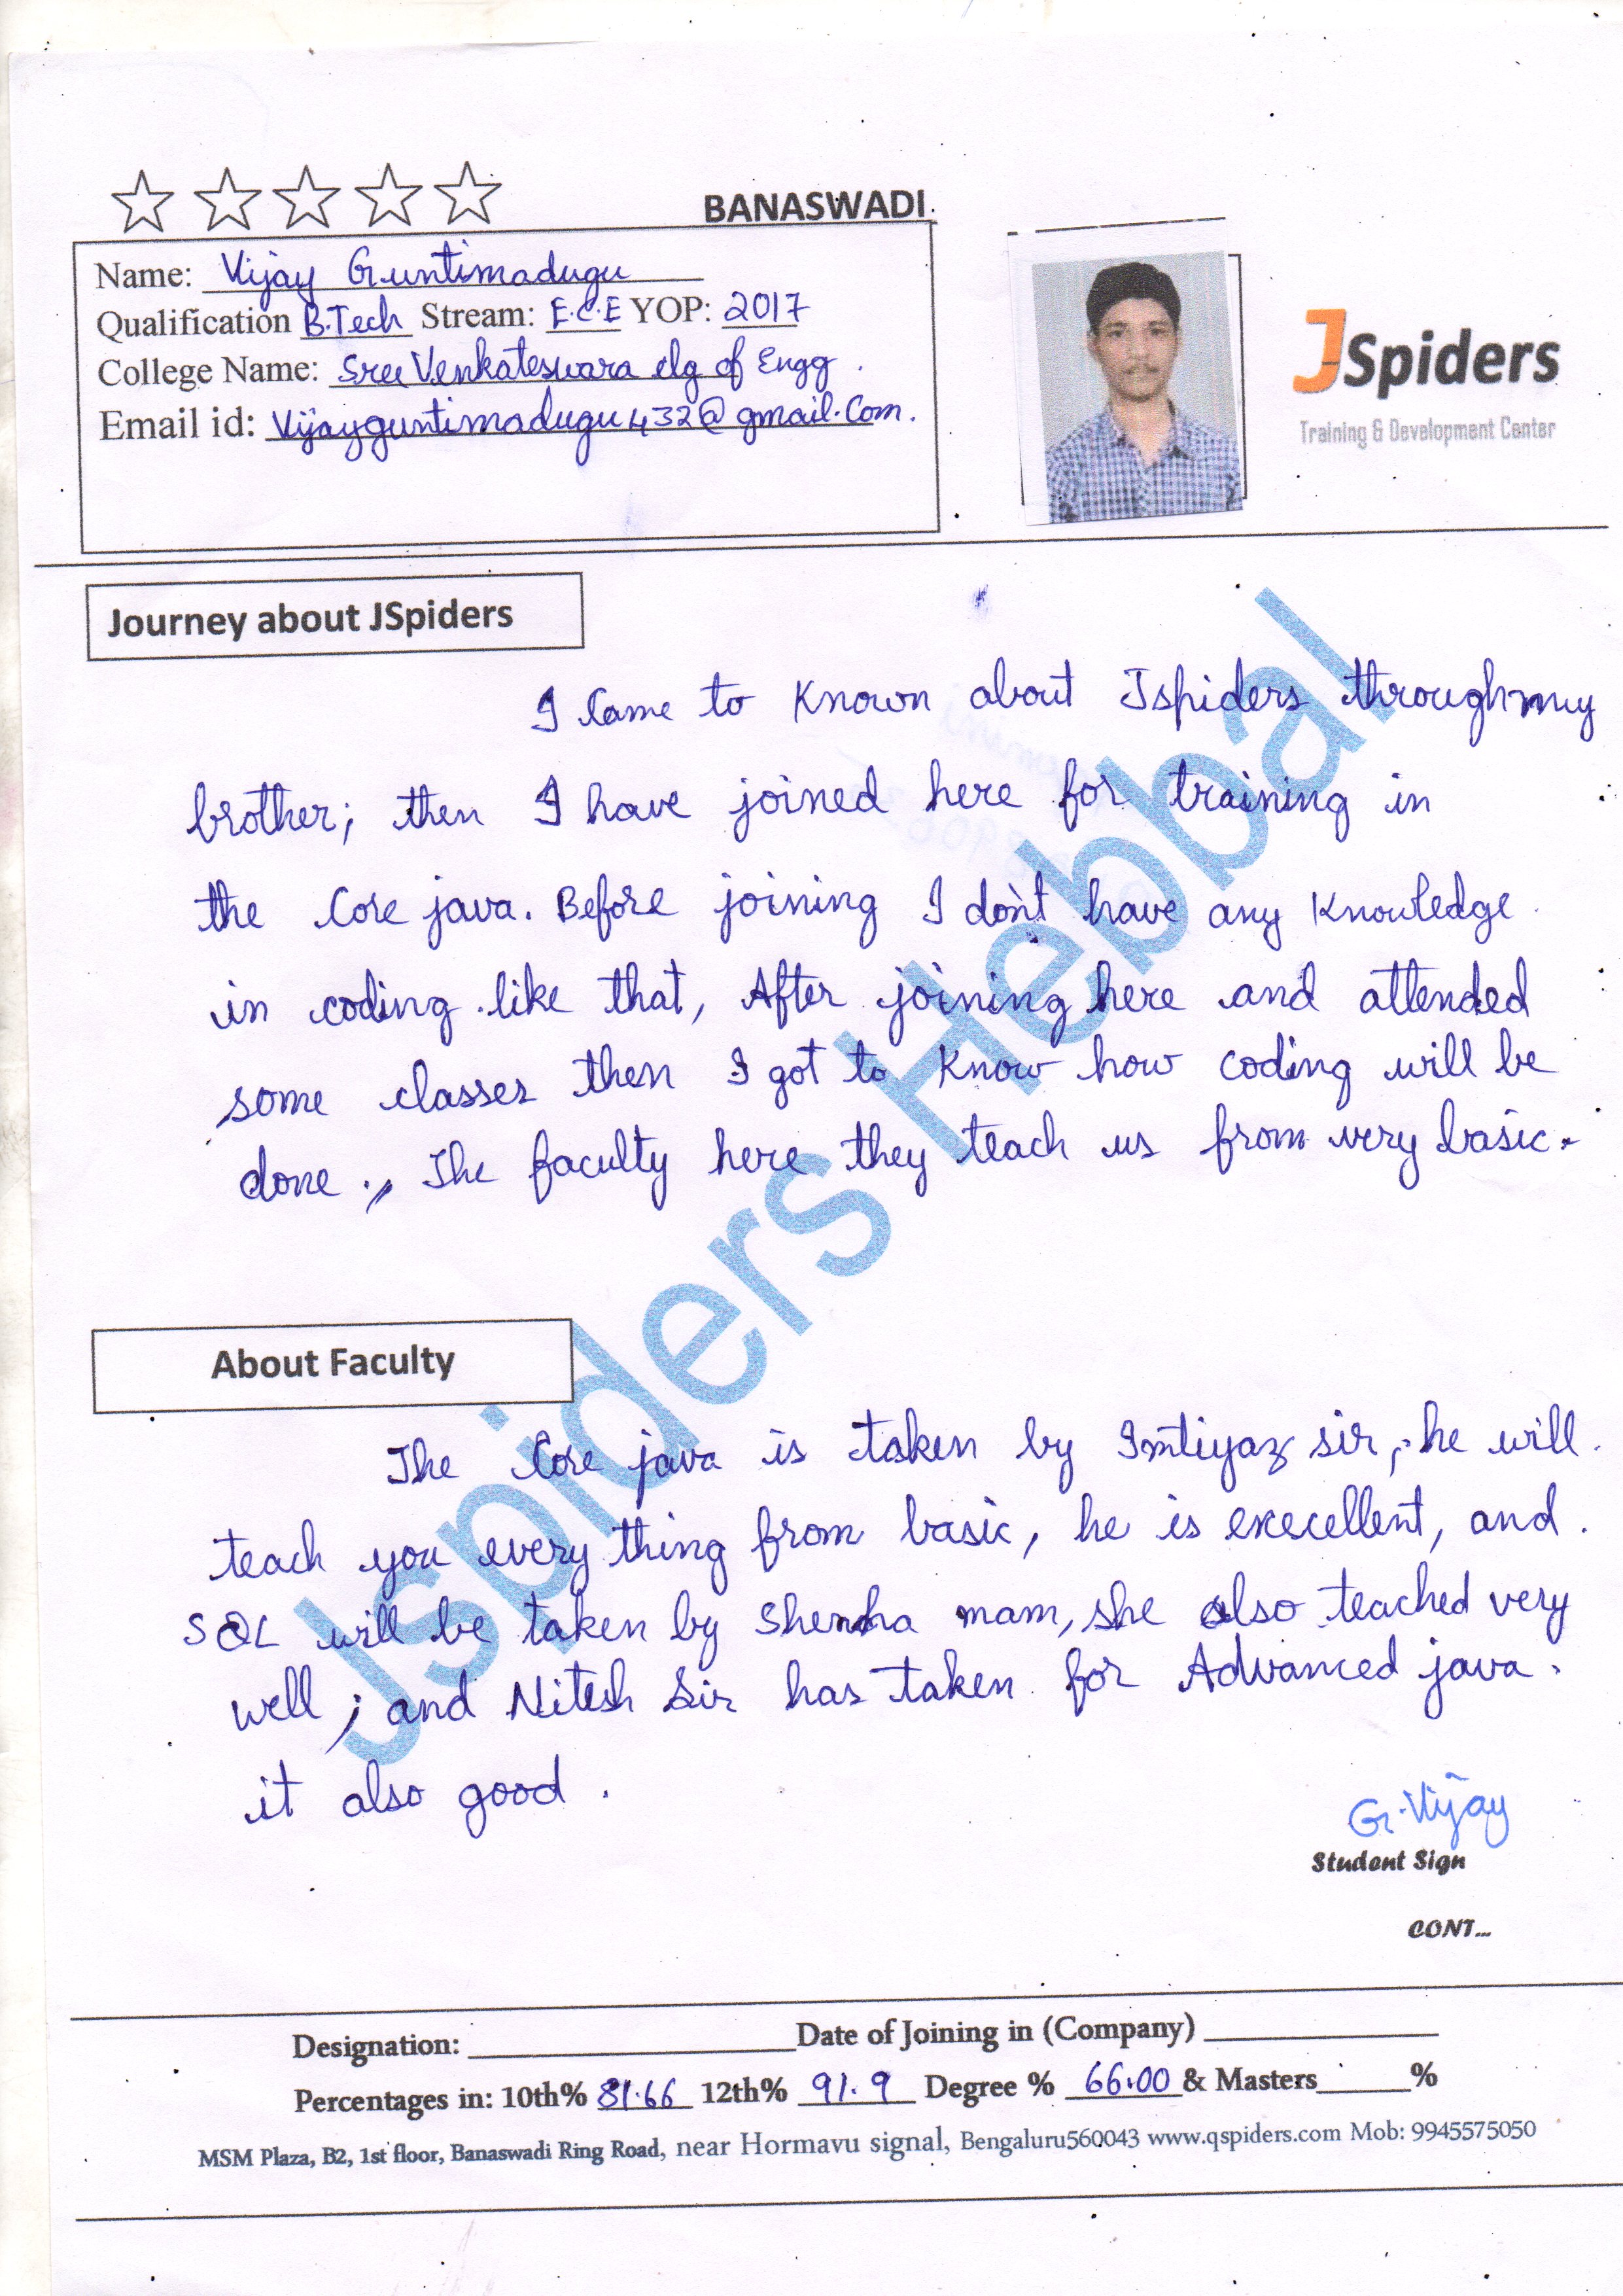 BANASWADI
Name: Vijay Guntimadugu
Qualification B.Tech Stream: E.C.E YOP: 2017
College Name: Sree Venkateswara clg of Engg.
Email id: Vijayguntimadugu432@gmail.com.
JSpiders
Training & Development Center
Journey about JSpiders
I came to known about Jspiders through my
brother; then I have joined here for training in
the Core java. Before joining I don't have any knowledge
in coding like that, After joining here and attended
some classes then I got to know how coding will be
done., The faculty here they teach us from very basic.
About Faculty
The Core java is taken by Imtiyaz sir, he will
teach you every thing from basic, he is execellent, and
SQL will be taken by mam, she also teached very
well; and Nitesh Sir has taken for Advanced java.
it also good.
G.Vijay
Student Sign
CONT...
Designation: Date of Joining in (Company)
Percentages in: 10th% 81.66 12th% 91.9 Degree % 66.00 & Masters %
MSM Plaza, B2, 1st floor, Banaswadi Ring Road, near Hormavu signal, Bengaluru560043 www.qspiders.com Mob: 9945575050
Jspiders Hebbal